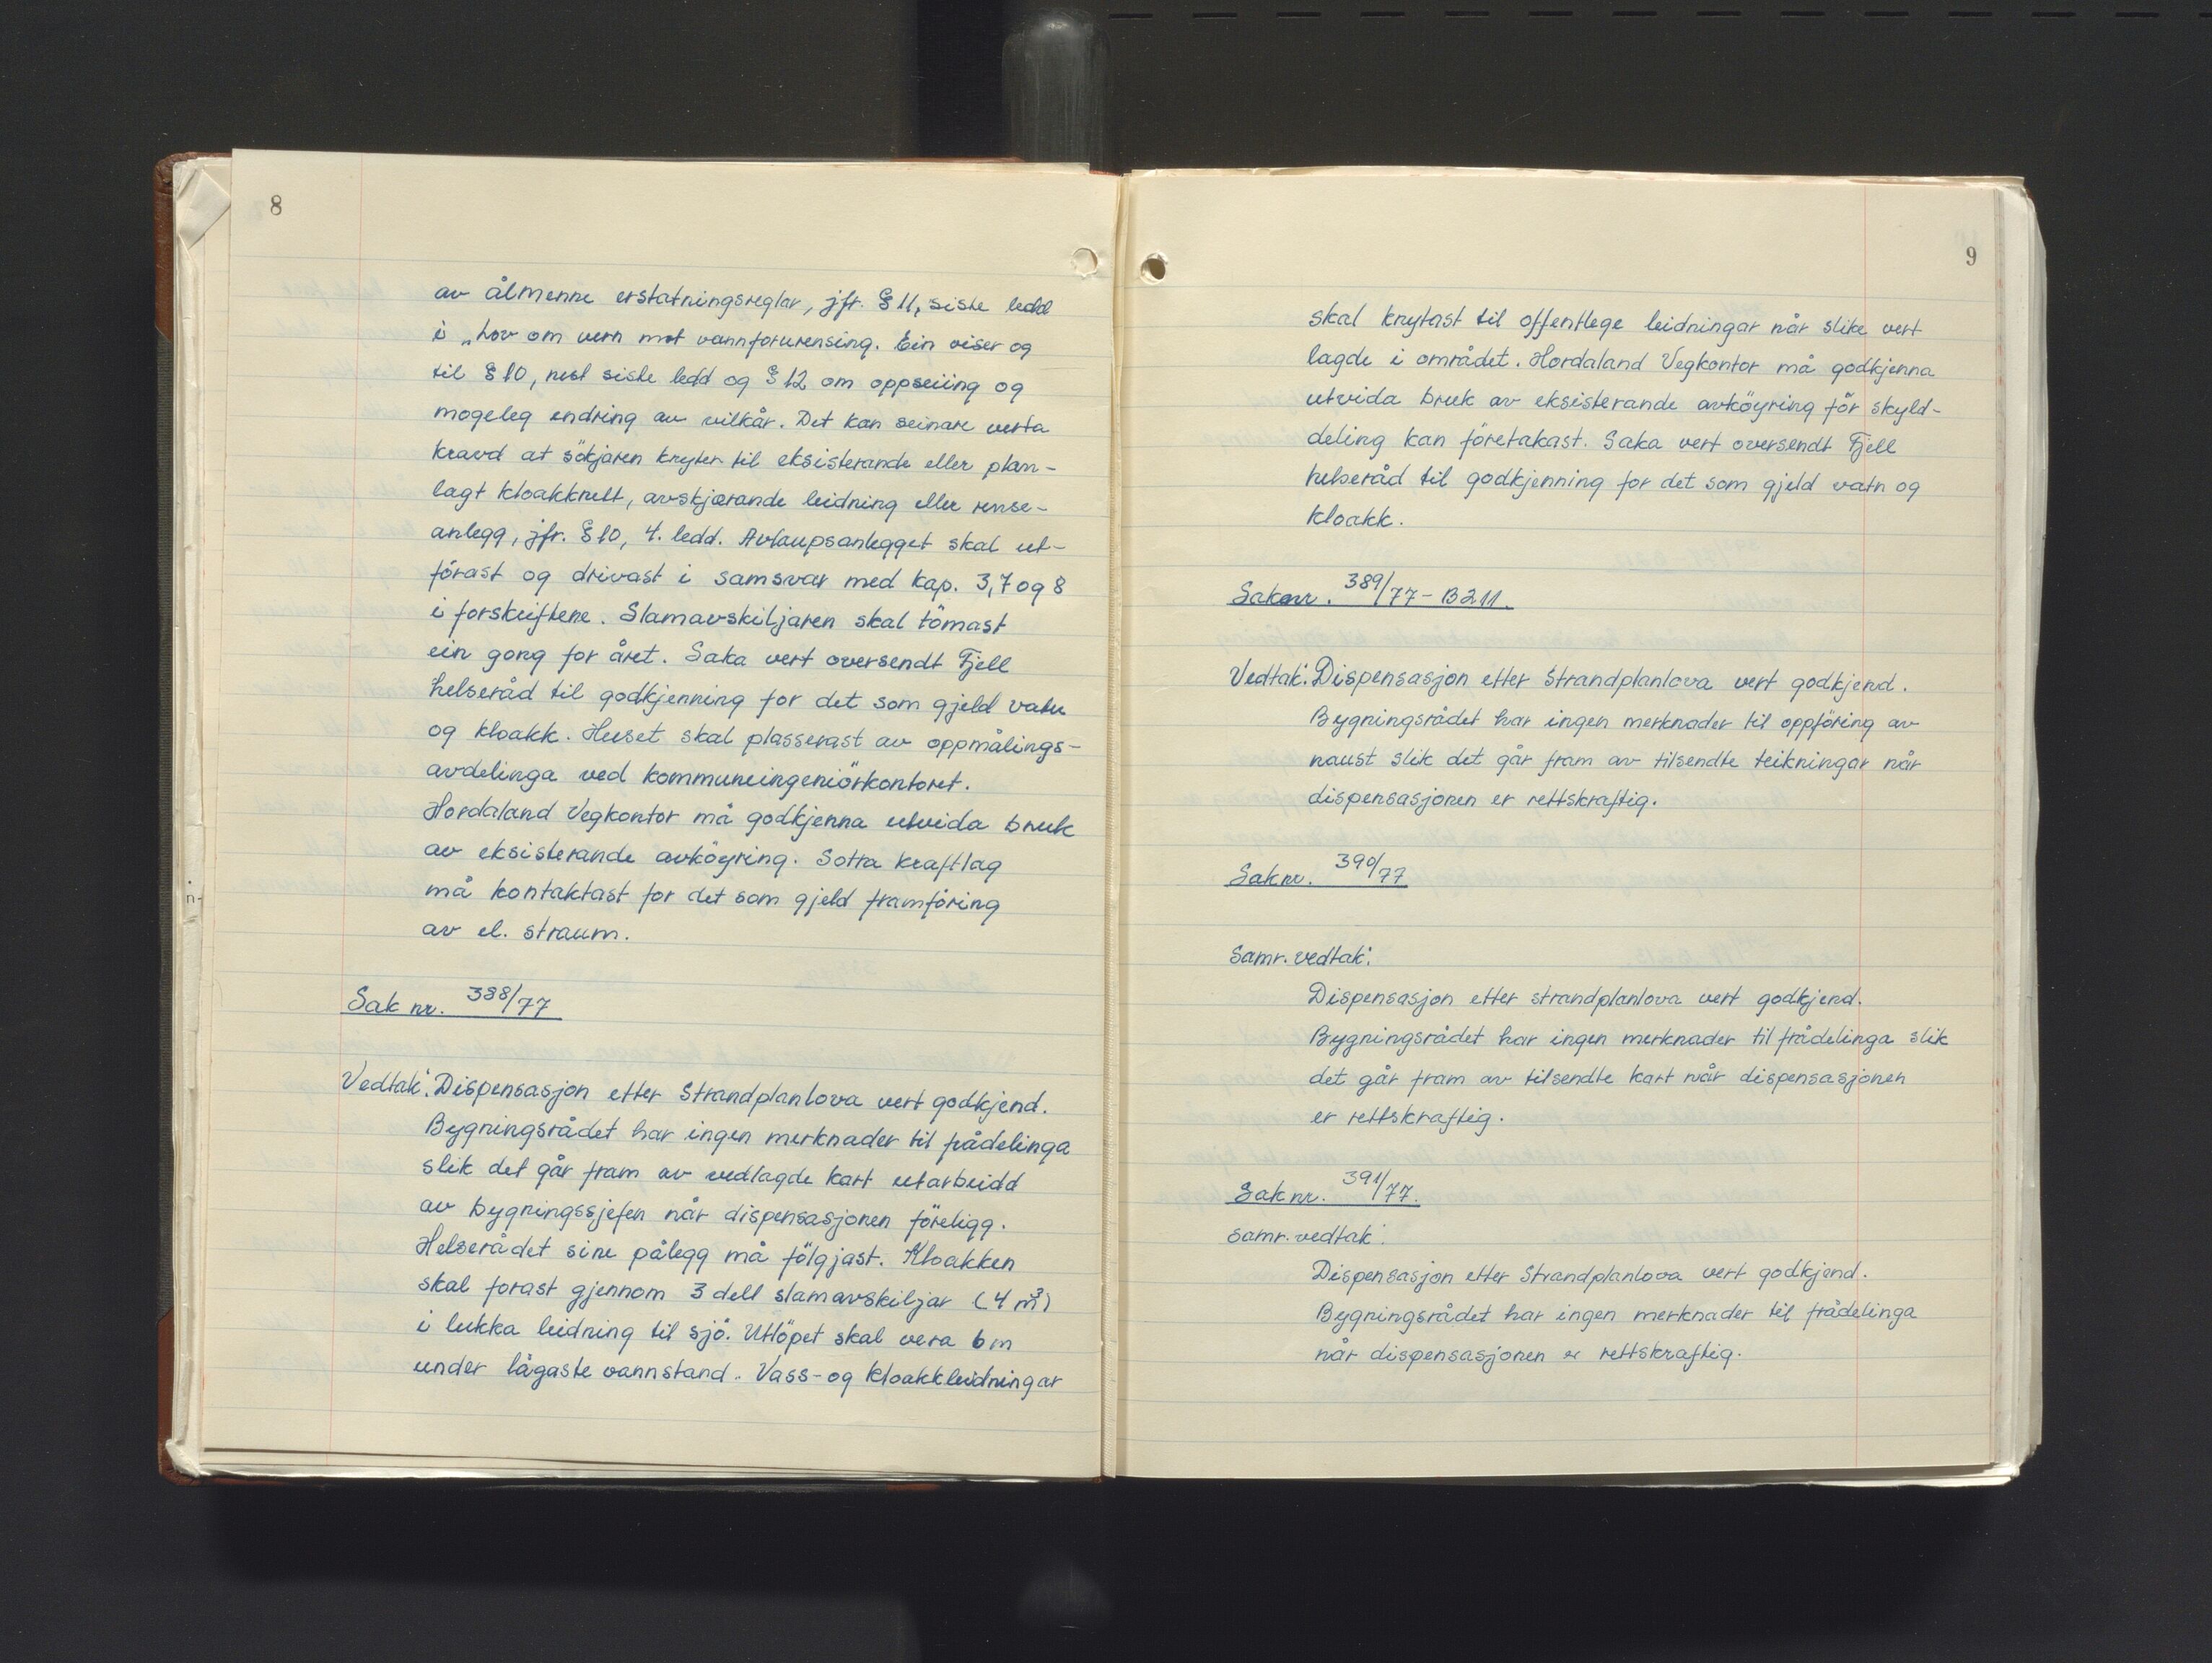 8
av ålmenne erstatningsreglar, jfr. § 11, siste ledd
i „Lov om vern mot vannforurensing. Ein viser og
til § 10, nest siste ledd og § 12 om oppseiing og
mogeleg endring av vilkår. Det kan seinare verta
kravd at sökjaren knyter til eksisterande eller plan-
lagt kloakknett, avskjærande leidning eller rense-
anlegg, jfr. § 10, 4. ledd. Avlaupsanlegget skal ut-
förast og drivast i samsvar med kap. 3, 7 og 8
i forskriftene. Slamavskiljaren skal tömast
ein gong for året. Saka vert oversendt Fjell
helseråd til godkjenning for det som gjeld vatn
og kloakk. Huset skal plasserast av oppmålings-
avdelinga ved kommuneingeniörkontoret.
Hordaland Vegkontor må godkjenna utvida bruk
av eksisterande avköyring. Sotra Kraftlag
må kontaktast for det som gjeld framföring
av el. straum.
Sak nr. 388/77
Vedtak: Dispensasjon etter Strandplanlova vert godkjend.
Bygningsrådet har ingen merknader til frådelinga
slik det går fram av vedlagde kart utarbeidd
av bygningssjefen når dispensasjonen föreligg.
Helserådet sine pålegg må fölgjast. Kloakken
skal forast gjennom 3 delt slamavskiljar (4 m³)
i lukka leidning til sjö. Utlöpet skal vera 6 m
under lågaste vannstand. Vass- og kloakkleidningar
9
skal knytast til offentlege leidningar når slike vert
lagde i området. Hordaland Vegkontor må godkjenna
utvida bruk av eksisterande avköyring för skyld-
deling kan företakast. Saka vert oversendt Fjell
helseråd til godkjenning for det som gjeld vatn og
kloakk.
Saknr. 389/77 - B 211.
Vedtak: Dispensasjon etter Strandplanlova vert godkjend.
Bygningsrådet har ingen merknader til oppföring av
naust slik det går fram av tilsendte teikningar når
dispensasjonen er rettskraftig.
Sak nr. 390/77
Samr. vedtak:
Dispensasjon etter strandplanlova vert godkjend.
Bygningsrådet har ingen merknader til frådelinga slik
det går fram av tilsendte kart når dispensasjonen
er rettskraftig.
Sak nr. 391/77.
Samr. vedtak:
Dispensasjon etter Strandplanlova vert godkjend.
Bygningsrådet har ingen merknader til frådelinga
når dispensasjonen er rettskraftig.